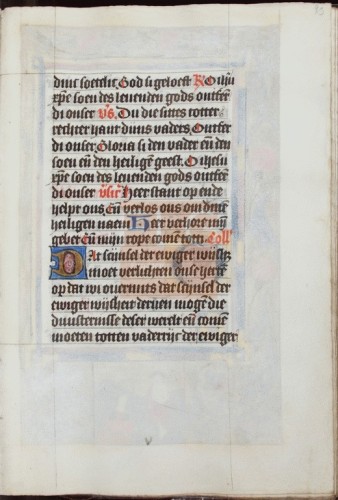 dinc soetelic God si geloeft R O ihū
xpe soen des leuenden gods ontfer
di onser Vs. Du die sittes totter
rechter hant dijns vaders Ontfer
di onser Gloria si den vader eñ den
soen eñ den heilige geest O ihesu
xpe soen des leuenden gods ontfer
di onser Here stant op ende
helpt ons Eñ verlos ons om dinē
heiligen naem Here verhore mij
gebet Eñ mijn rope come tot ti Coll'
Dat scijnsel der ewiger
moet verluchten onse
op dat wi ouermits dat scijnsel der
ewiger wijsheit mogē die
duusternisse deser werelt eñ comē
moeten totten vaderrijc der ewiger